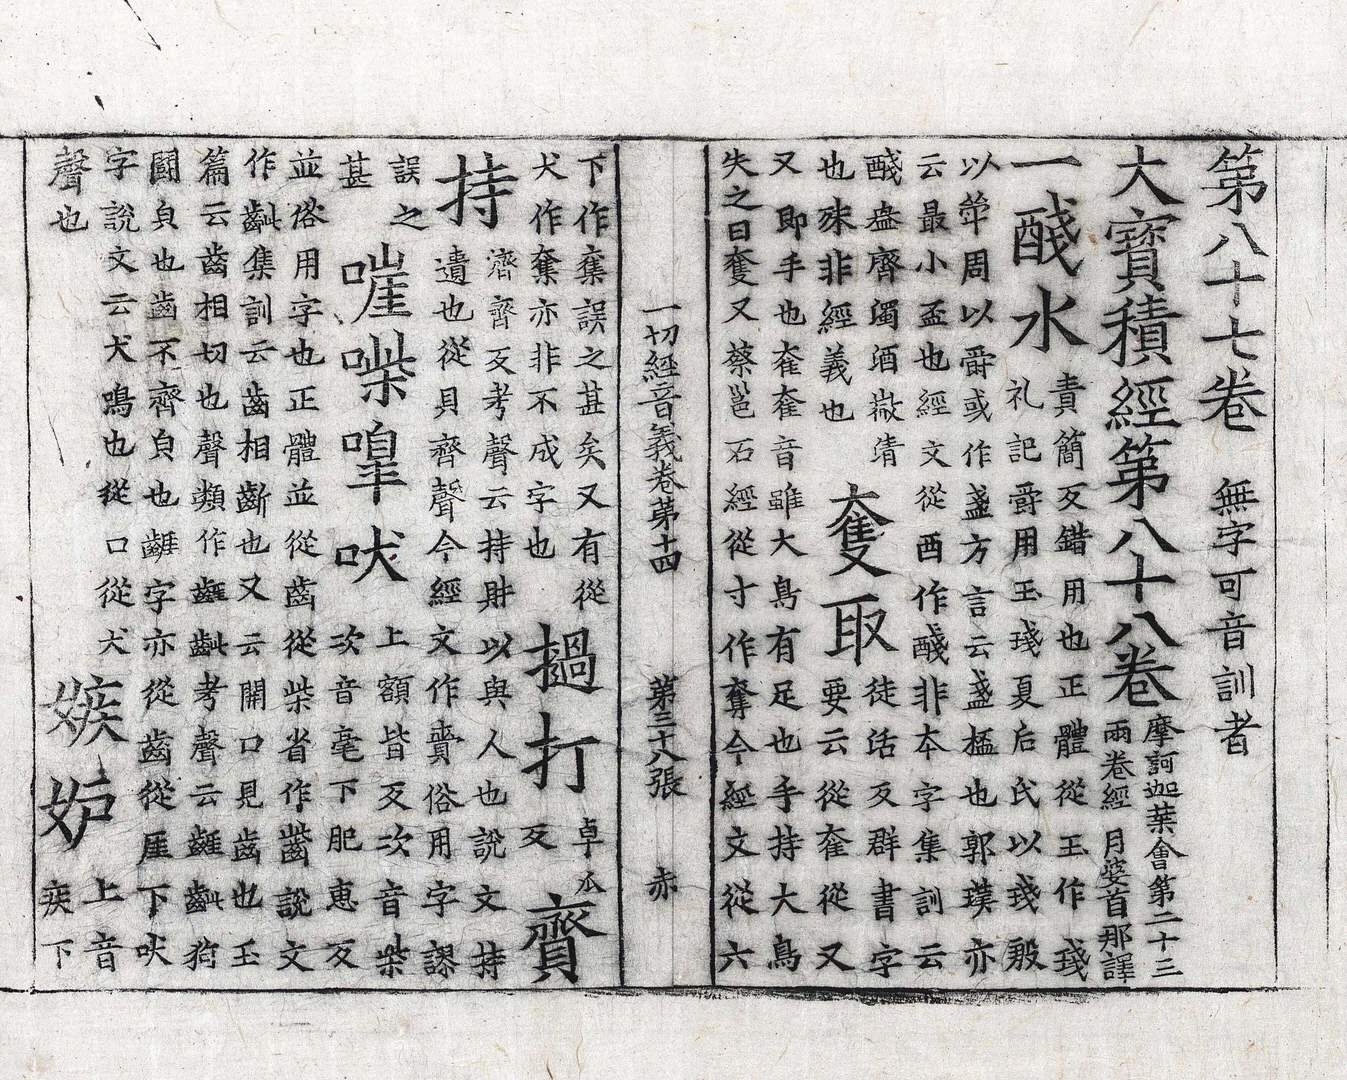 第八十七卷　無字可音訓者
大寶積經第八十八卷　摩訶迦葉會第二十三
兩卷經　月婆首那譯
一醆水　責簡反錯用也正體從玉作琖
礼記爵用玉琖夏后氏以琖殷
以斝周以爵或作盞方言云盞㮎也郭璞亦
云最小盃也經文從酉作醆非本字集訓云
醆盎齊濁酒微清
也殊非經義也
奪取　徒活反群書字
要云從奞從又
又即手也奞奞音雖大鳥有足也手持大鳥
失之曰奪又蔡邕石經從寸作奪今經文從六
一切經音義卷第十四　第三十八張　赤
下作奪誤之甚矣又有從
犬作奪亦非不成字也
撾打　卓瓜
反
齎
持　濟齊反考聲云持財以與人也說文持
遺也從貝齊聲今經文作賷俗用字謬
誤之
甚
嘊喍嘷吠　上額皆反次音柴
次音毫下肥惠反
並俗用字也正體並從齒從柴省作齜說文
作齜集訓云齒相齗也又云開口見齒也玉
篇云齒相切也聲類作齜考聲云齜狗
鬬皃也齒不齊皃也字亦從齒從厓下吠
字說文云犬鳴也從口從犬
聲也
嫉妒　上音
疾下